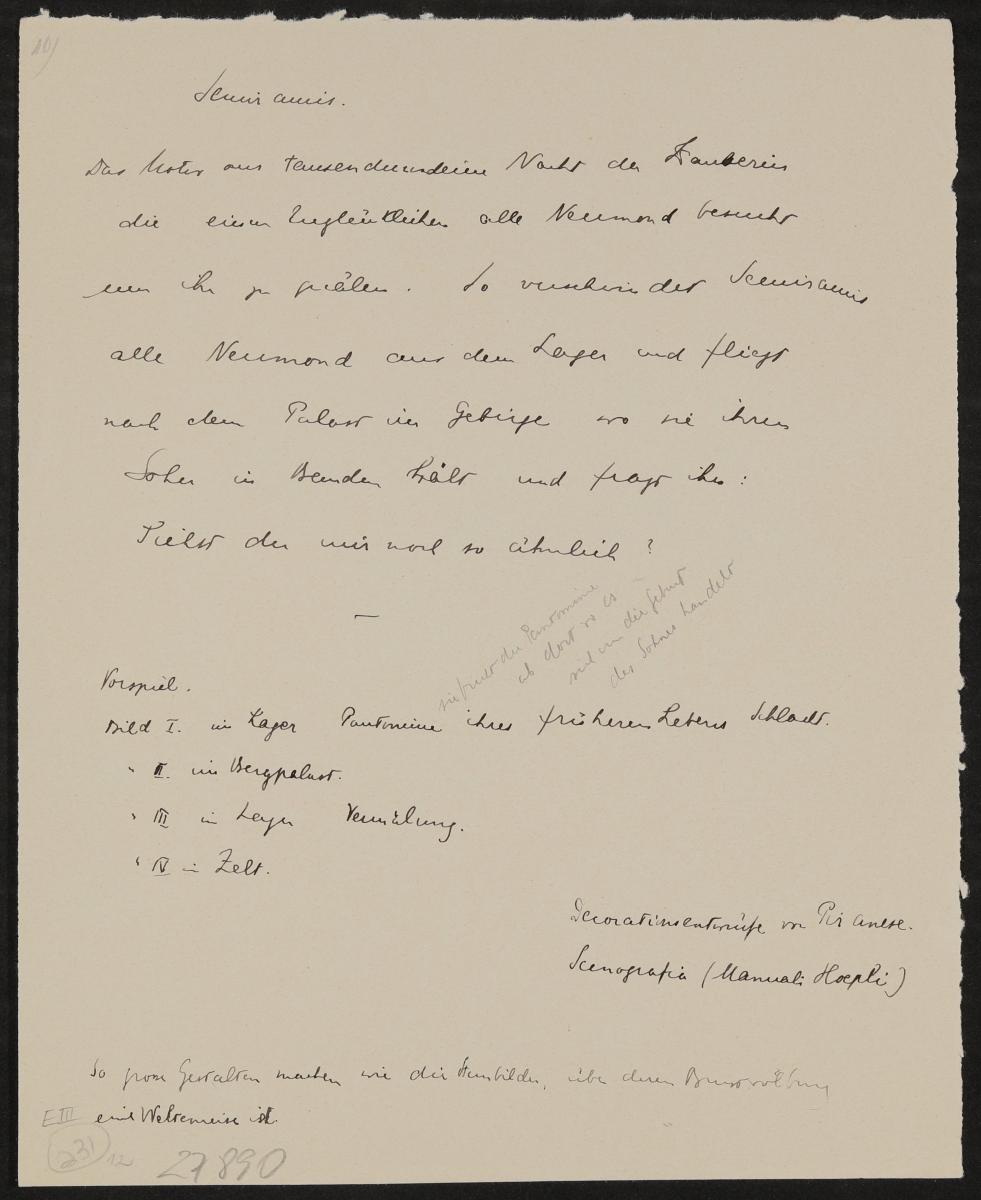 10)
Semiramis.
Das Motiv aus Tausendundeine Nacht der Zauberin
die einen Unglücklichen alle Neumond besucht
um ihn zu quälen. So verschwindet Semiramis
alle Neumond aus dem Lager und fliegt
nach dem Palast im Gebirge wo sie ihren
Sohn in Banden hält und fragt ihn:
Siehst du mir noch so ähnlich?
—
sie die Pantomime
ab dort wo es
sich um die Geburt
des Sohnes handelt
Vorspiel.
Bild I. im Lager Pantomime ihres früheren Lebens Schlacht.
" II. im Bergpalast.
" III im Lager Vermälung.
" IV im Zelt.
Decorationsentwürfe von Piranese.
Scenografia (Manuali Hoepli)
So grosse Gestalten machen wie die, über deren Brustwölbung
eine ist.
E III
231
12
27890